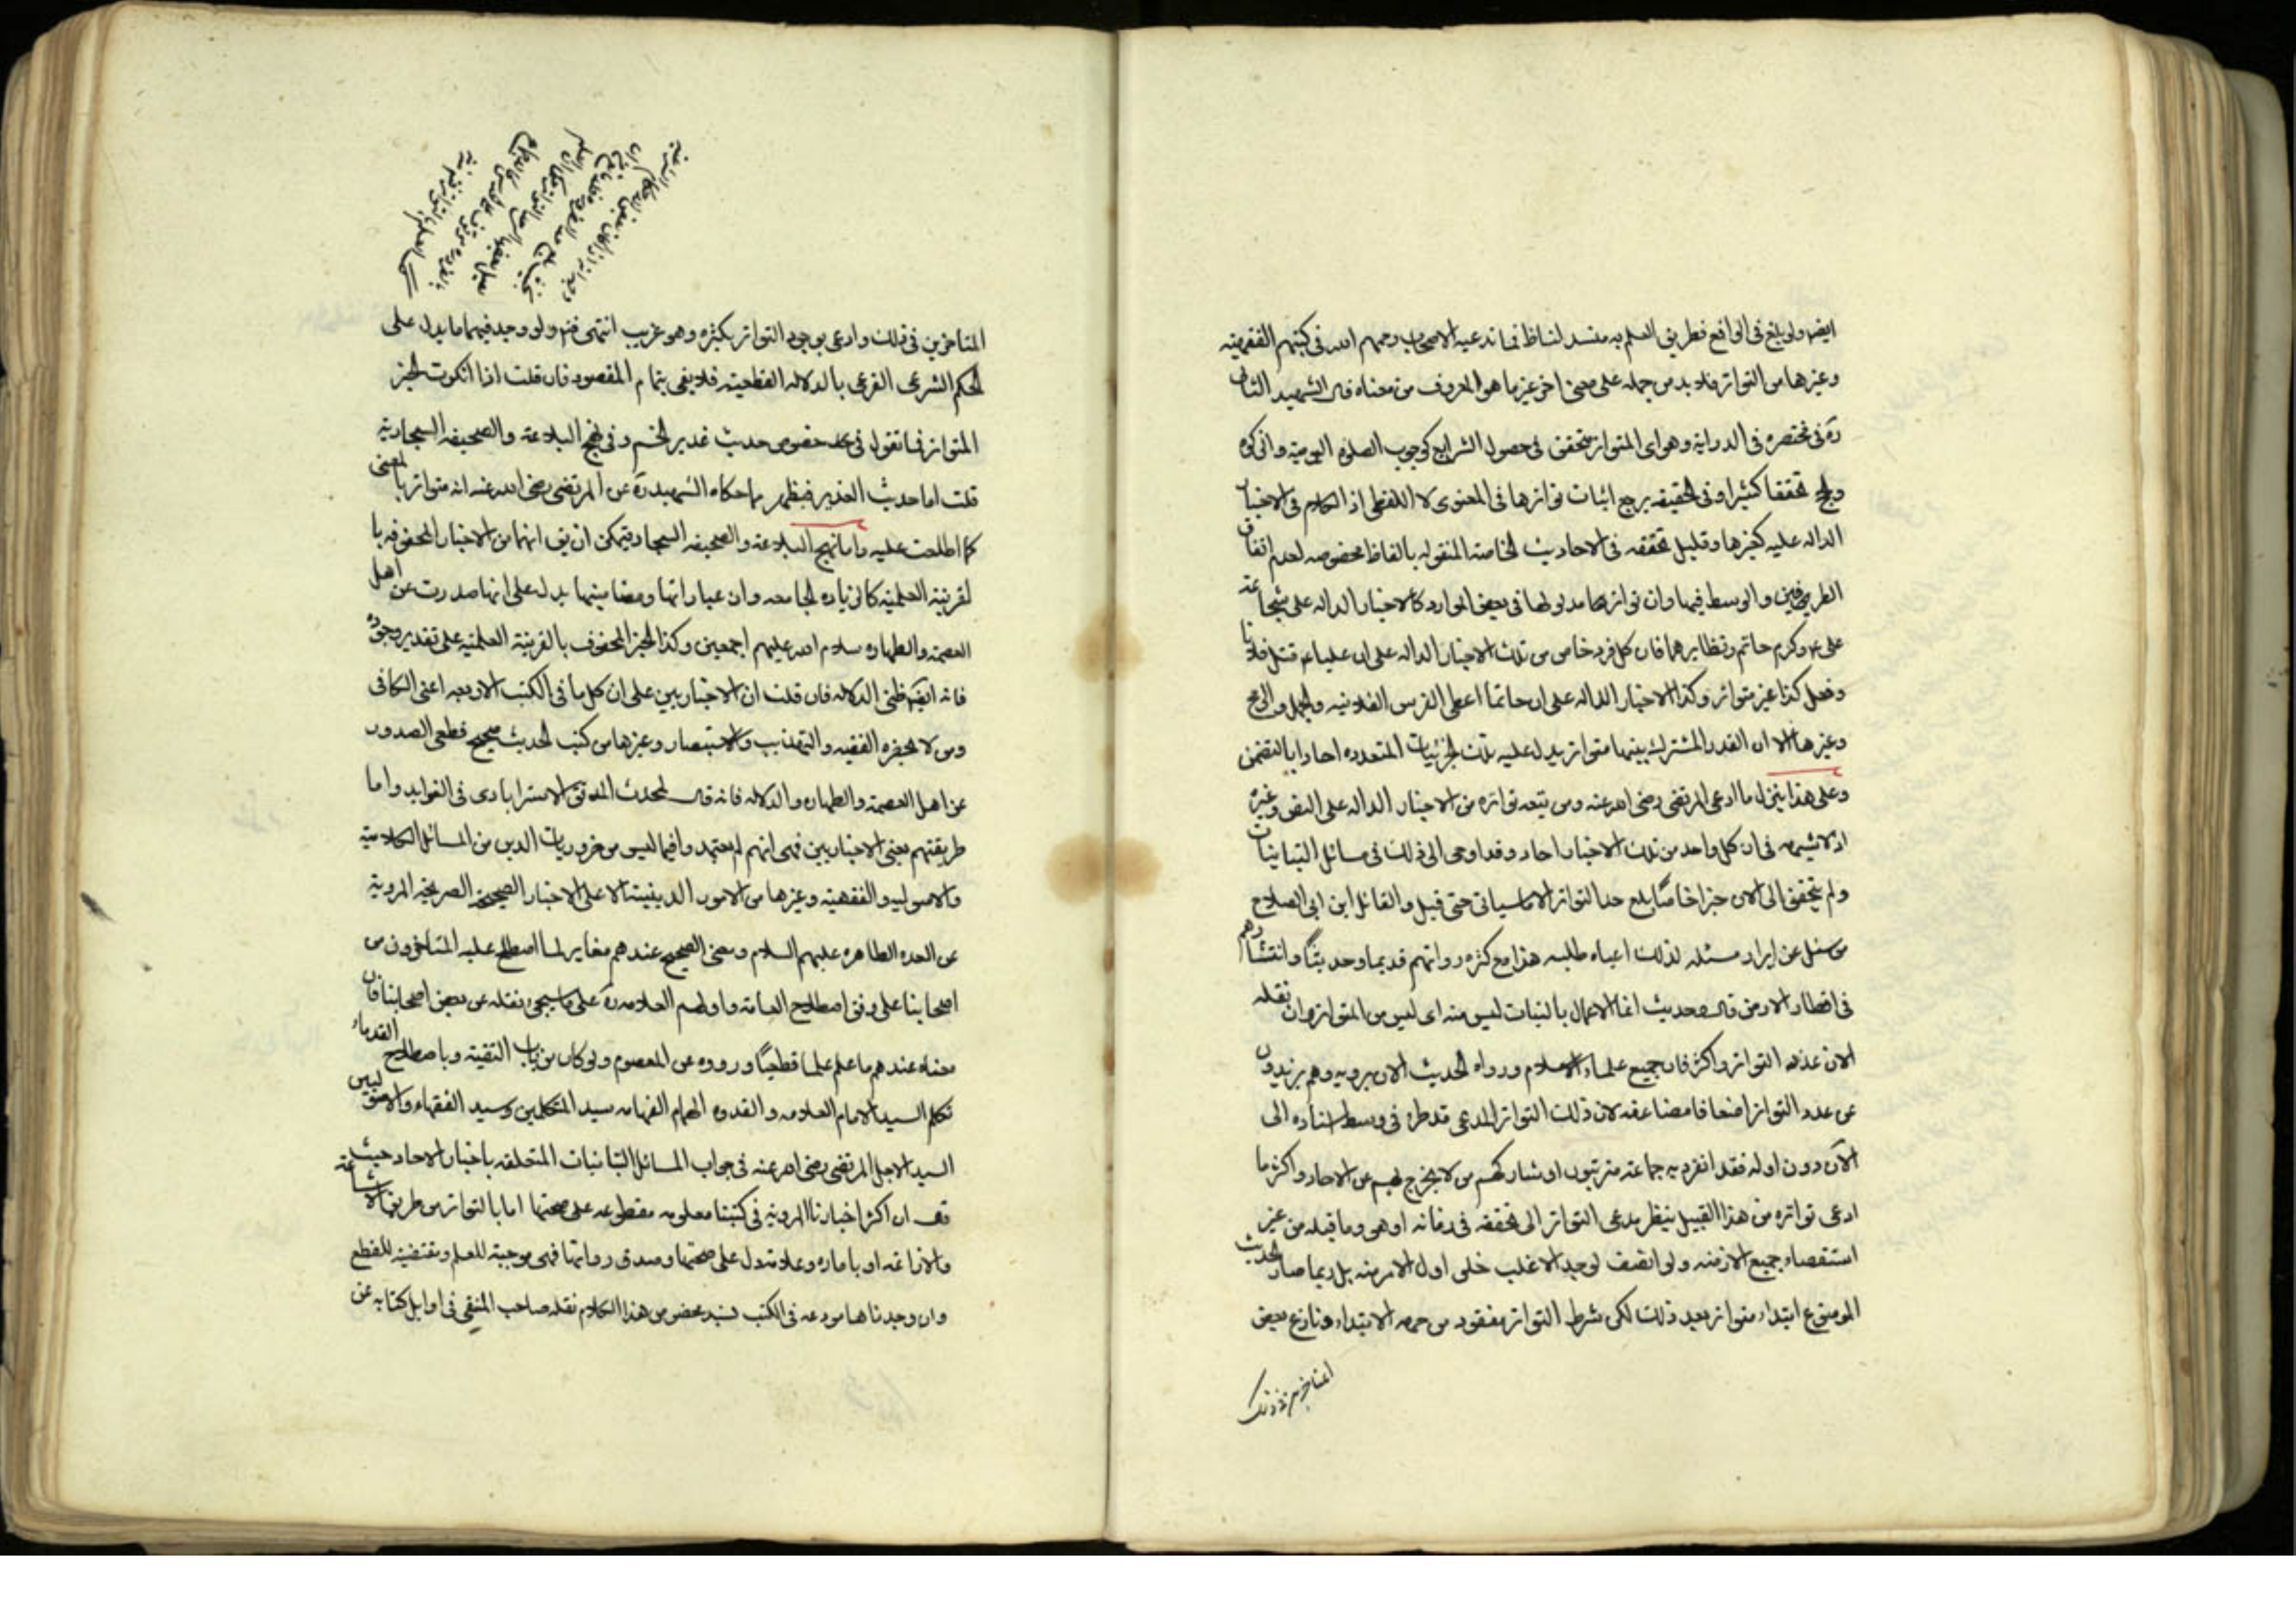 ايضا ولو بلغ فى الواقع فطريق العلم به منسد لنا فما تدعيه الاصحاب رحمهم الله فى كتبهم الفقهيته
وغيرها من التواتر فلا بد من حمله على معنى اخر غير ما هو المعروف من معناه قال الشهيد الثانى
ره فى مختصره فى الدراية وهو اى المتواتر متحقق فى حصول الشرايع كوجوب الصلوه اليومية والزكوه
والحج تحققا كثيرا وفى الحقيقه يرجع اثبات تواترها فى المعنوى لا اللفظى اذ الكلام فى الاخبار
الداله عليه كغيرها وقليل تحققه فى الاحاديث الخاصة المنقوله بالفاظ مخصوصه لعدم اتفاق
الطرفين والوسط فيها وان تواتر مدلولها فى بعض الموارد كالاخبار الداله على شجاعة
على ع وكرم حاتم ونظايرهما فان كل فرد خاص من تلك الاخبار الداله على ان عليا ع قتل فلانا
وفعل كذا غير متواتر وكذا الاخبار الداله على ان حاتما اعطى الفرس الفلانيه والجمل والرمح
وغيرها الا ان القدر المشترك بينها متواتر يدل عليه تلك الجزئيات المتعدده احادا بالتضمن
وعلى هذا ينزل ما ادعى المرتضى رضى الله عنه ومن تبعه تواتره من الاخبار الداله على النص وغيره
اذ لا شبهه فى ان كل واحد من تلك الاخبار احاد وقد اومى الى ذلك فى مسائل التبانيات
ولم يتحقق الى الان خبر خاص بلغ حد التواتر الا ما سياتى حتى قيل والقائل ابن ابى الصلاح
من سئل عن ايراد مسئله لذلك اعياه طلبه هذا مع كثره رواتهم قديما وحديثا وانتشارهم
فى اقطار الارض قال وحديث انما الاعمال بالنيات ليس منه اى ليس من المتواتر وان نقله
الان عدد التواتر واكثر فان جميع علماء الاسلام ورواه الحديث الان يروونه وهم يزيدون
عن عدد التواتر اضعافا مضاعفه لان ذلك التواتر المدعى قد طرء فى وسط اسناده الى
الآن دون اوله فقد انفرد به جماعة مترتبون او شاركهم من لا يخرج بهم عن الاحاد واكثر ما
ادعى تواتره من هذا القبيل ينظر مدعى التواتر الى تحققه فى زمانه او هو وما قبله من غير
استقصاء جميع الازمنه ولو انصف لوجد الاغلب خلى اول الامر منه بل ربما صار الحديث
الموضوع ابتداء متواترا بعد ذلك لكن شرط التواتر مفقود من جهه الابتداء ونازع بعض
المتاخرين فى ذلك
المتاخرين فى ذلك وادعى بوجود التواتر بكثره وهو غريب انتهى فتم ولو وجد فيهما ما يدل على
الحكم الشرعى الفرعى بالدلاله القطعيته فلا يفى بتمام المقصود فان قلت اذا انكرت الخبر
المتواتر فما تقول فى خصوص حديث غدير الخم وفى نهج البلاغه والصحيفه السجادية
قلت اما حديث الغدير فيظهر بما حكاه الشهيد ره عن المرتضى رضى الله عنه انه متواتر بالمعنى
كما اطلعت عليه واما نهج البلاغه والصحيفه السجاديه فيمكن ان يق انهما من الاخبار المحفوفه با
لقرينة العلميه كالزياده الجامعه وان عباراتها ومضامينها يدل على انها صدرت عن اهل
العصمة والطهاره سلام الله عليهم اجمعين وكذا الخبر المحفوف بالقرينة العلميه على تقدير وجوده
فانه ايضا ظنى الدلاله فان قلت ان الاخباريين على ان كل ما فى الكتب الاربعه اعنى الكافى
ومن لا يحضره الفقيه والتهذيب والاستبصار وغيرها من كتب الحديث صحيح قطعى الصدور
عن اهل العصمة والطهاره والدلاله فانه قال المحدث المدقق الاسترابادى فى الفوايد واما
طريقتهم يعنى الاخباريين فهى انهم لم يعتمدوا فيما ليس من ضروريات الدين من المسائل الكلامية
والاصوليه والفقهيه وغيرها من الامور الدينيه الا على الاخبار الصحيحة الصريحه المروية
عن العتره الطاهره عليهم السلام ومعنى الصحيح عندهم مغاير لما اصطلح عليه المتاخرون من
اصحابنا على وفق اصطلاح العامه واولهم العلامه ره على ما سيجئ نقله عن بعض اصحابنا فان
معناه عندهم ما علم علما قطعيا وروده عن المعصوم ولو كان من باب التقية وباصطلاح القدماء
تكلم السيد الامام العلامه والقدوه الهمام الفهامه سيد المتكلمين وسيد الفقهاء والاصوليين
السيد الاجل المرتضى رضى الله عنه فى جواب المسائل التبانيات المتعلقه باخبار الاحاد حيث
قال ان اكثر اخبارنا المروية فى كتبنا معلومه مقطوعه على صحتها اما بالتواتر من طريق الاشاعة
والاذاعة او باماره وعلامه تدل على صحتها وصدق رواتها فهى موجبة للعلم ومقتضية للقطع
وان وجدناها مودعه فى الكتب بسند مخصوص هذا الكلام نقله صاحب المنتقى فى اوايل كتابه عن